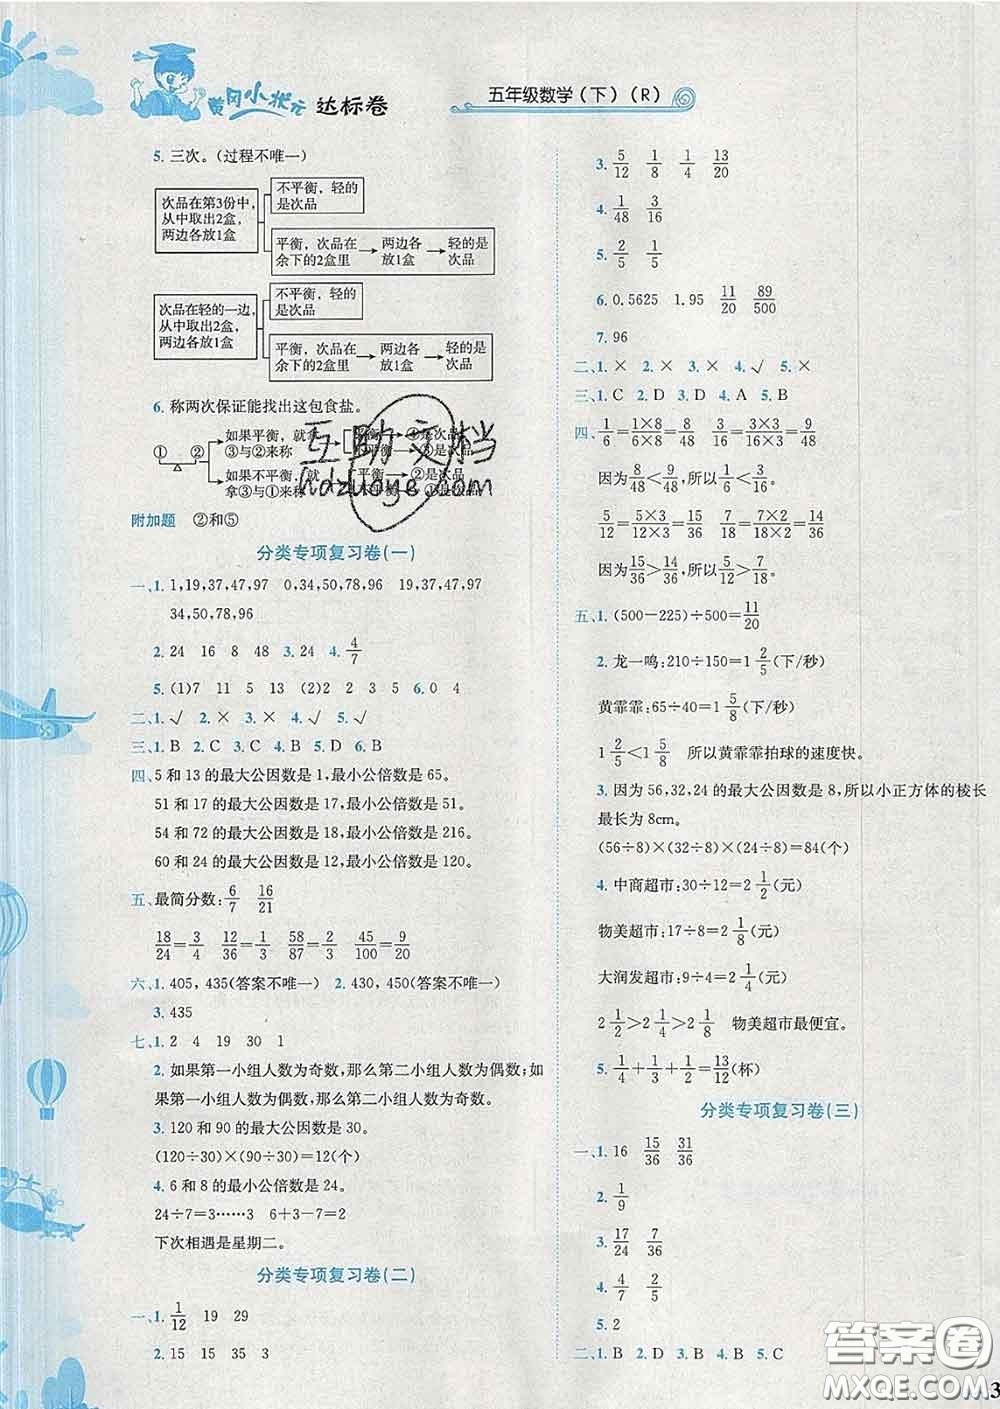 黄冈小状元 达标卷
五年级数学(下)(R)
5. 三次。(过程不唯一)
次品在第3份中,从中取出2盒,两边各放1盒
不平衡,轻的是次品
平衡,次品在余下的2盒里 → 两边各放1盒 → 轻的是次品
次品在轻的一边,从中取出2盒,两边各放1盒
不平衡,轻的是次品
平衡,次品在余下的2盒里 → 两边各放1盒 → 轻的是次品
6. 称两次保证能找出这包食盐。
① ②
如果平衡,就拿③与②来称
如果不平衡,就拿③与①来称
平衡 → ②是次品
互助文档
hdzuoye.com
附加题 ②和⑤
分类专项复习卷(一)
一、1. 1,19,37,47,97 0,34,50,78,96 19,37,47,97
34,50,78,96
2. 24 16 8 48 3. 24 4. 4/7
5. (1)7 11 5 13 (2)2 2 3 5 6. 0 4
二、1. √ 2. × 3. × 4. √ 5. √
三、1. B 2. C 3. C 4. B 5. B 6. B
四、5 和 13 的最大公因数是 1,最小公倍数是 65。
51 和 17 的最大公因数是 17,最小公倍数是 51。
54 和 72 的最大公因数是 18,最小公倍数是 216。
60 和 24 的最大公因数是 12,最小公倍数是 120。
五、最简分数: 6/7 16/21
18/24=3/4 12/36=1/3 58/87=2/3 45/100=9/20
六、1. 405,435(答案不唯一) 2. 430,450(答案不唯一)
3. 435
七、1. 2 4 19 30 1
2. 如果第一小组人数为奇数,那么第二小组人数为偶数;如
果第一小组人数为偶数,那么第二小组人数为奇数。
3. 120 和 90 的最大公因数是 30。
(120÷30)×(90÷30)=12(个)
4. 6 和 8 的最小公倍数是 24。
24÷7=3……3 6+3-7=2
下次相遇是星期二。
分类专项复习卷(二)
一、1. 1/12 19 29
2. 15 15 35 3
3. 5/12 1/8 1/4 13/20
4. 1/48 3/16
5. 2/5 1/5
6. 0.5625 1.95 11/20 89/500
7. 96
二、1. × 2. × 3. × 4. √ 5. ×
三、1. C 2. D 3. D 4. A 5. B
四、1/6=1×8/6×8=8/48 3/16=3×3/16×3=9/48
因为8/48<9/48,所以1/6<3/16。
5/12=5×3/12×3=15/36 7/18=7×2/18×2=14/36
因为15/36>14/36,所以5/12>7/18。
五、1. (500-225)÷500=11/20
2. 龙一鸣:210÷150=1 2/5(下/秒)
黄霏霏:65÷40=1 5/8(下/秒)
1 2/5<1 5/8 所以黄霏霏拍球的速度快。
3. 因为 56,32,24 的最大公因数是 8,所以小正方体的棱长
最长为 8cm。
(56÷8)×(32÷8)×(24÷8)=84(个)
4. 中商超市:30÷12=2 1/2(元)
物美超市:17÷8=2 1/8(元)
大润发超市:9÷4=2 1/4(元)
2 1/2>2 1/4>2 1/8 物美超市最便宜。
5. 1/4+1/3+1/2=13/12(杯)
分类专项复习卷(三)
一、1. 16 15/36 31/36
2. 1/9
3. 17/24 7/36
4. 4/5 4/5
5. 2
二、1. C 2. B 3. A 4. B 5. C
答案圈
MXQE.COM
3